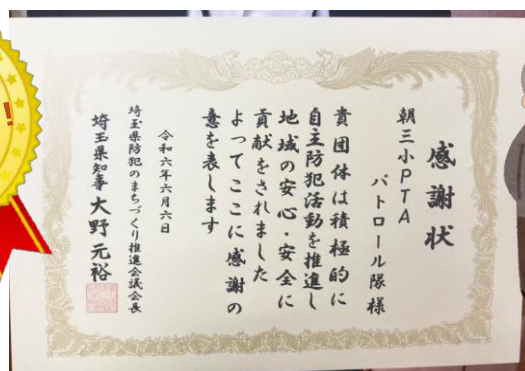 感謝状
朝三小PTA
パトロール隊様
貴団体は積極的に
自主防犯活動を推進し
地域の安心・安全に
貢献をされました
よってここに感謝の
意を表します
令和六年六月六日
埼玉県防犯のまちづくり推進会議会長
埼玉県知事 大野元裕